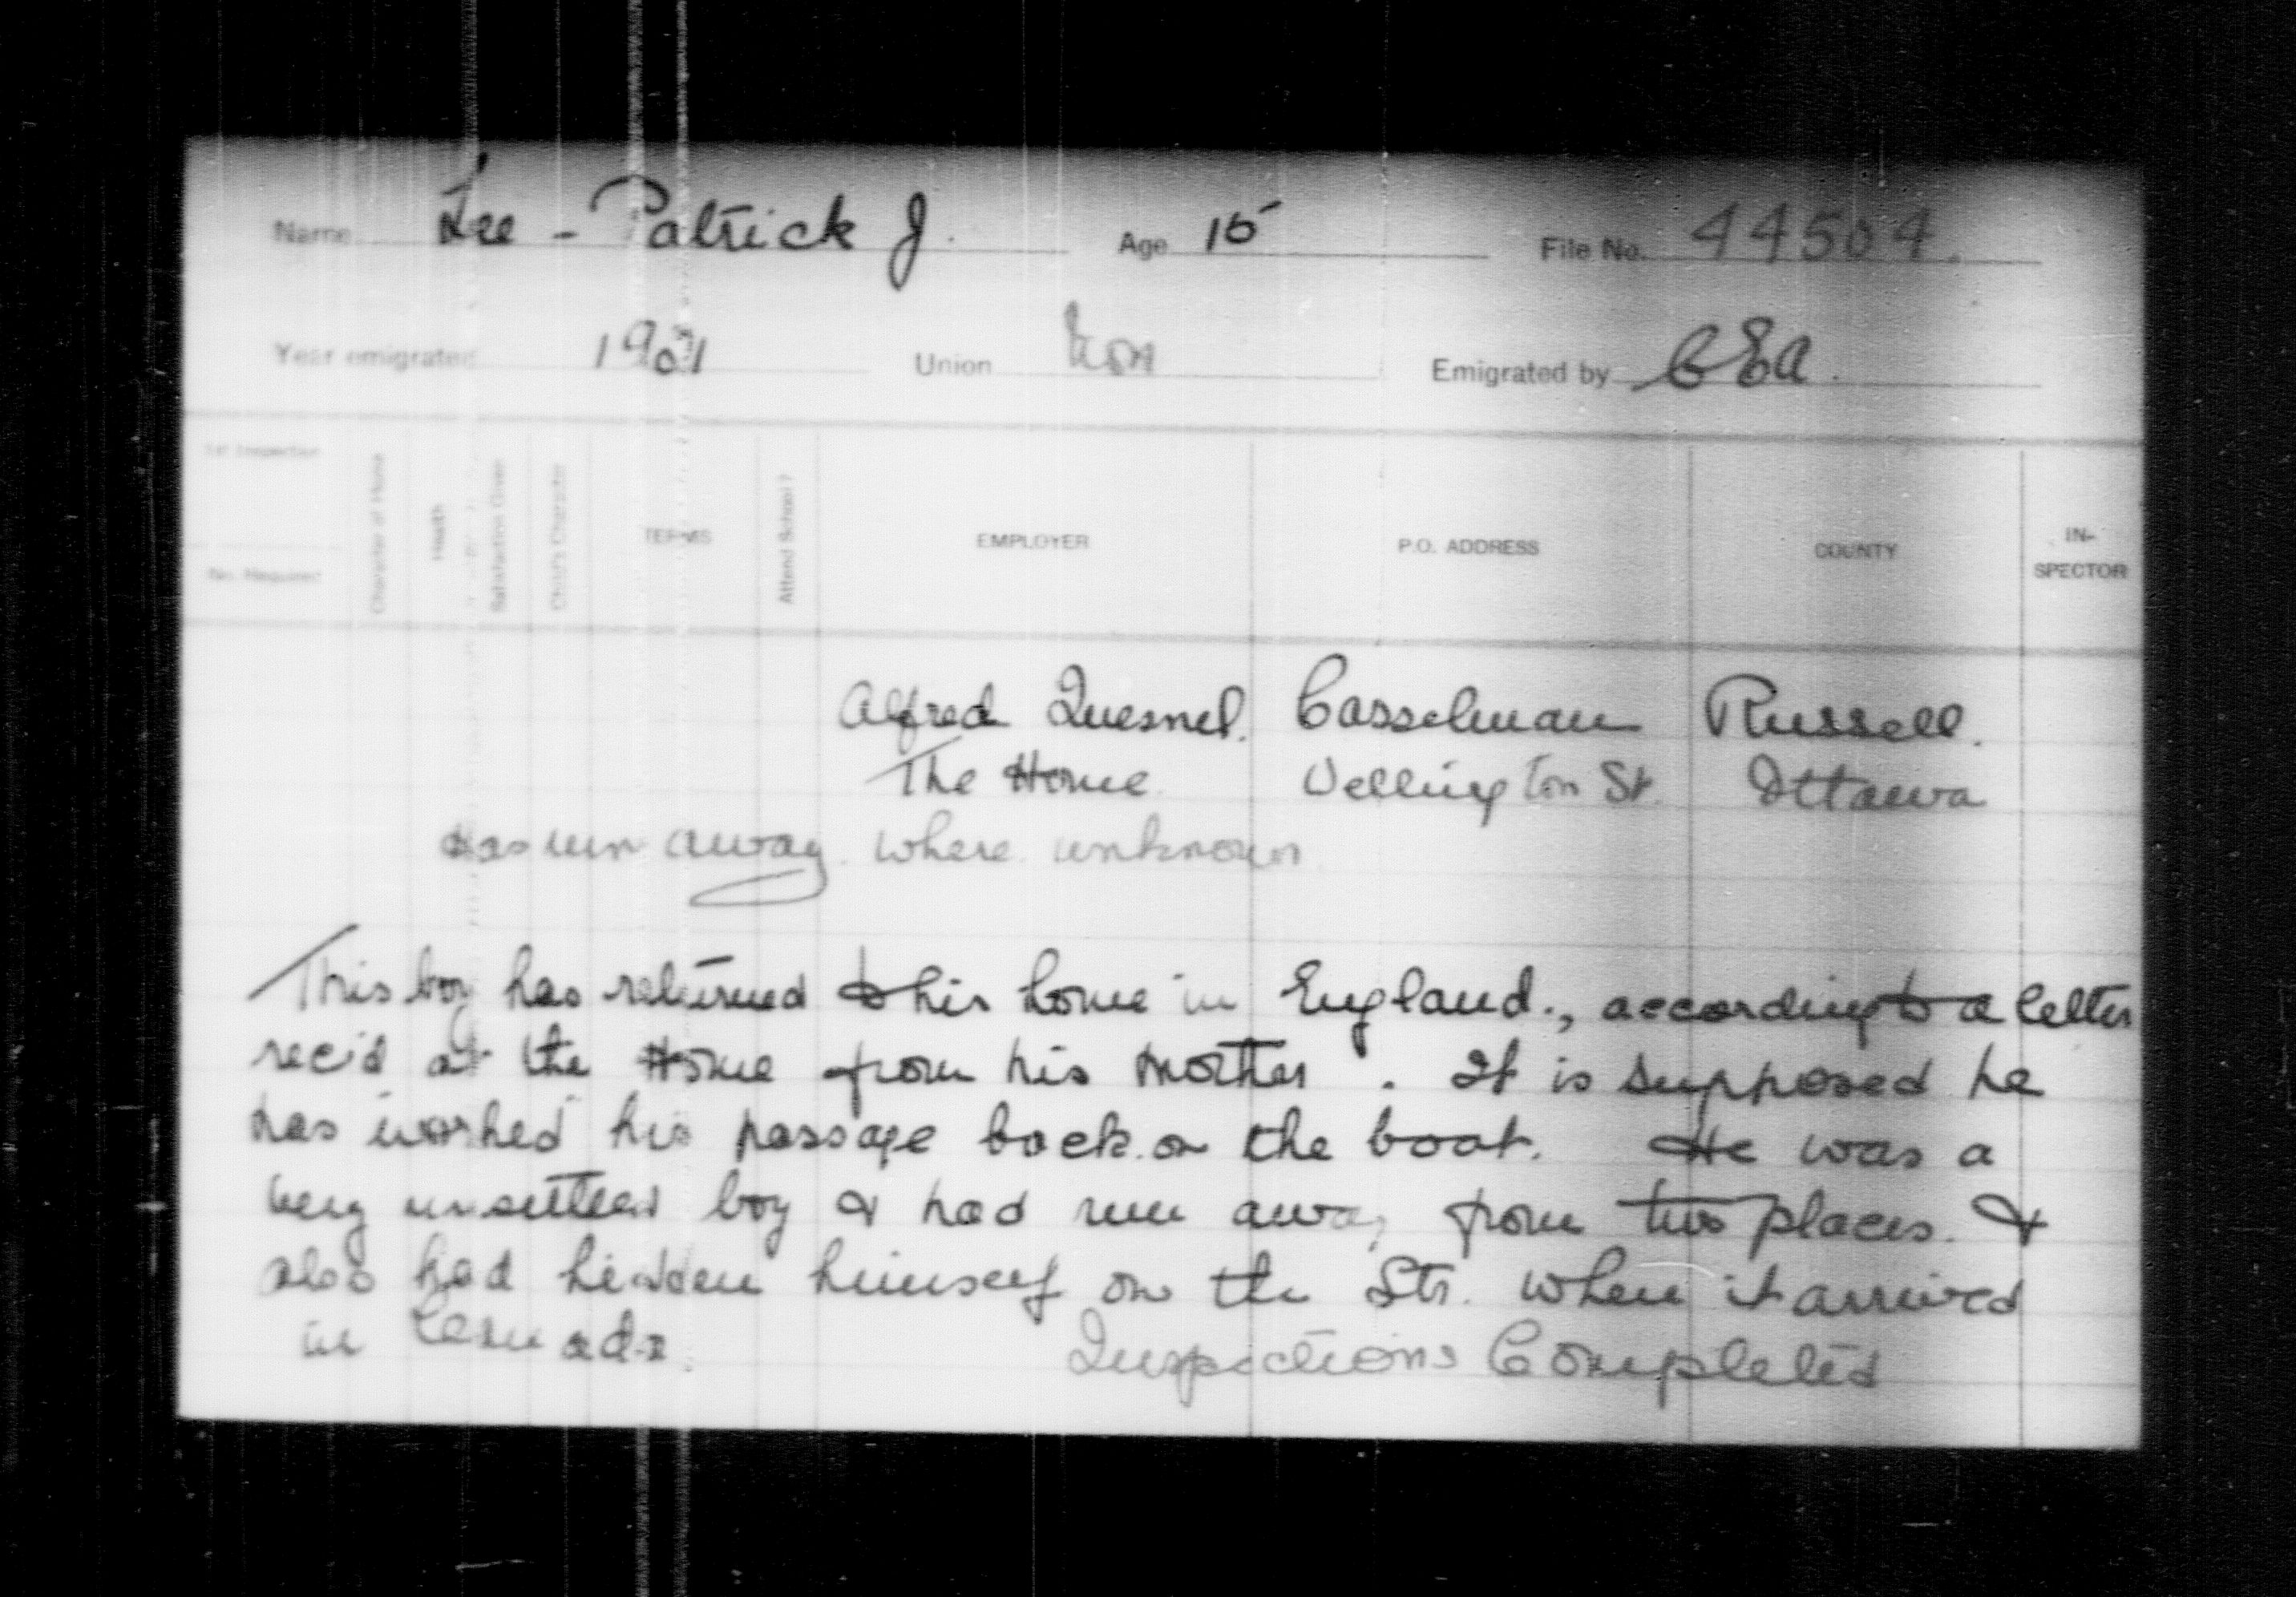 Name Lee - Patrick J. Age 15 File No. 44504.
Year emigrated 1901 Union Non Emigrated by CEA.
1st Inspection
No. Required
Character of Home
Health
Satisfaction Given
Child's Character
TERMS
Attend School?
EMPLOYER
P.O. ADDRESS
COUNTY
IN-
SPECTOR
Alfred Quesnel. Casselman Russell.
The Home Wellington St. Ottawa
Has run away. where unknown
This boy has returned to his home in England., according to a letter
rec'd at the Home from his mother. It is supposed he
has worked his passage back on the boat. He was a
very unsettled boy & had run away from two places. &
also had hidden himself on the Str. when it arrived
in Canada.
Inspections Completed